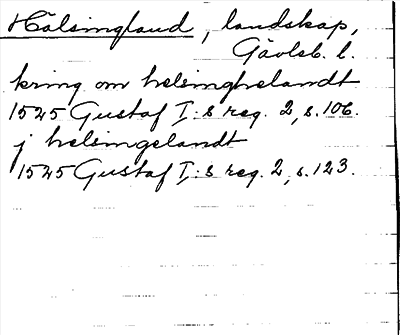 Hälsingland, landskap,
Gävleb. l.
kring om helsinghelandt
1525 Gustaf I:s reg. 2, s. 106.
j helsingelandt
1525 Gustaf I:s reg. 2, s. 123.